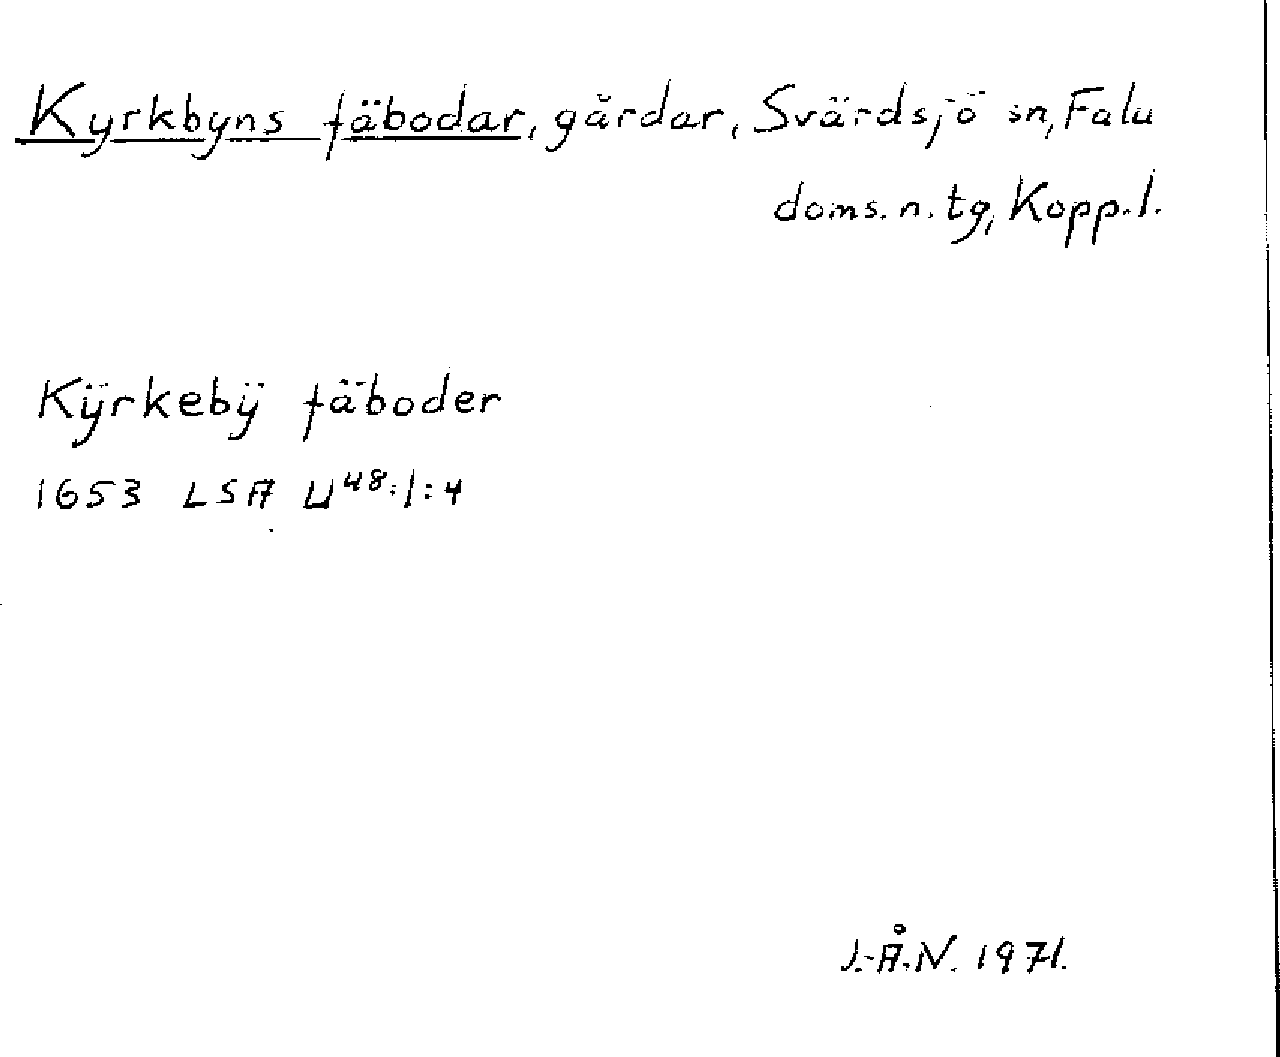 Kyrkbyns fäbodar, gårdar, Svärdsjö sn, Falu
doms. n. tg, Kopp. l.
Kÿrkebÿ fäboder
1653 LSA U48:1:4
J.-Å.N. 1971.